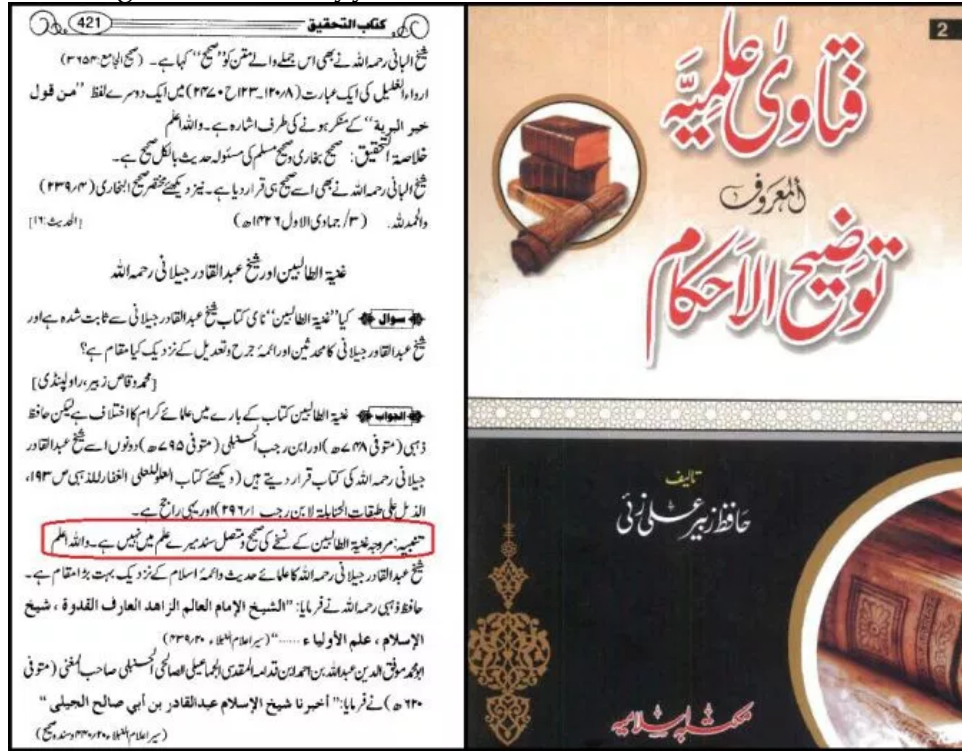 421
کتاب التحقیق
شیخ البانی رحمہ اللہ نے بھی اس جملے والے متن کو "صحیح" کہا ہے۔ (صحیح الجامع: ۳۶۵۴)
ارواء الغلیل کی ایک عبارت (۱۲۰/۸۔۱۲۳ ح ۲۴۷۰) میں ایک دوسرے لفظ "من قول
خير البرية" کے منکر ہونے کی طرف اشارہ ہے۔ واللہ اعلم
خلاصۃ التحقیق: صحیح بخاری و صحیح مسلم کی مسئولہ حدیث بالکل صحیح ہے۔
شیخ البانی رحمہ اللہ نے بھی اسے صحیح ہی قرار دیا ہے۔ نیز دیکھئے مختصر صحیح البخاری (۲۳۹/۴)
والحمدللہ۔ (۳/ جمادی الاول ۱۴۲۶ھ) [الحدیث: ۱۶]
غنیۃ الطالبین اور شیخ عبدالقادر جیلانی رحمہ اللہ
سوال کیا "غنیۃ الطالبین" نامی کتاب شیخ عبدالقادر جیلانی سے ثابت شدہ ہے اور
شیخ عبدالقادر جیلانی کا محدثین اور ائمۂ جرح و تعدیل کے نزدیک کیا مقام ہے؟
[محمد وقاص زبیر، راولپنڈی]
الجواب غنیۃ الطالبین کتاب کے بارے میں علمائے کرام کا اختلاف ہے لیکن حافظ
ذہبی (متوفی ۷۴۸ھ) اور ابن رجب الحنبلی (متوفی ۷۹۵ھ) دونوں اسے شیخ عبدالقادر
جیلانی رحمہ اللہ کی کتاب قرار دیتے ہیں (دیکھئے کتاب العلو للعلی الغفار للذہبی ص ۱۹۳،
الذیل علی طبقات الحنابلۃ لابن رجب ۲۹۶/۱) اور یہی راجح ہے۔
تنبیہ: مروجہ غنیۃ الطالبین کے نسخے کی صحیح و متصل سند میرے علم میں نہیں ہے۔ واللہ اعلم
شیخ عبدالقادر جیلانی رحمہ اللہ کا علمائے حدیث و ائمۂ اسلام کے نزدیک بہت بڑا مقام ہے۔
حافظ ذہبی رحمہ اللہ نے فرمایا: "الشيخ الإمام العالم الزاهد العارف القدوة ، شيخ
الإسلام ، علم الأولياء ......" (سیر اعلام النبلاء ۴۳۹/۲۰)
ابومحمد موفق الدین عبداللہ بن احمد ابن قدامہ المقدسی الجماعیلی الصالحی الحنبلی صاحب المغنی (متوفی
۶۲۰ھ) نے فرمایا: "أخبرنا شيخ الإسلام عبدالقادر بن أبي صالح الجيلي"
(سیر اعلام النبلاء ۴۴۰/۲۰ وسندہ صحیح)
2
فتاویٰ علمیہ
المعروف
توضیح الاحکام
تالیف
حافظ زبیر علی زئی
مکتبہ اسلامیہ